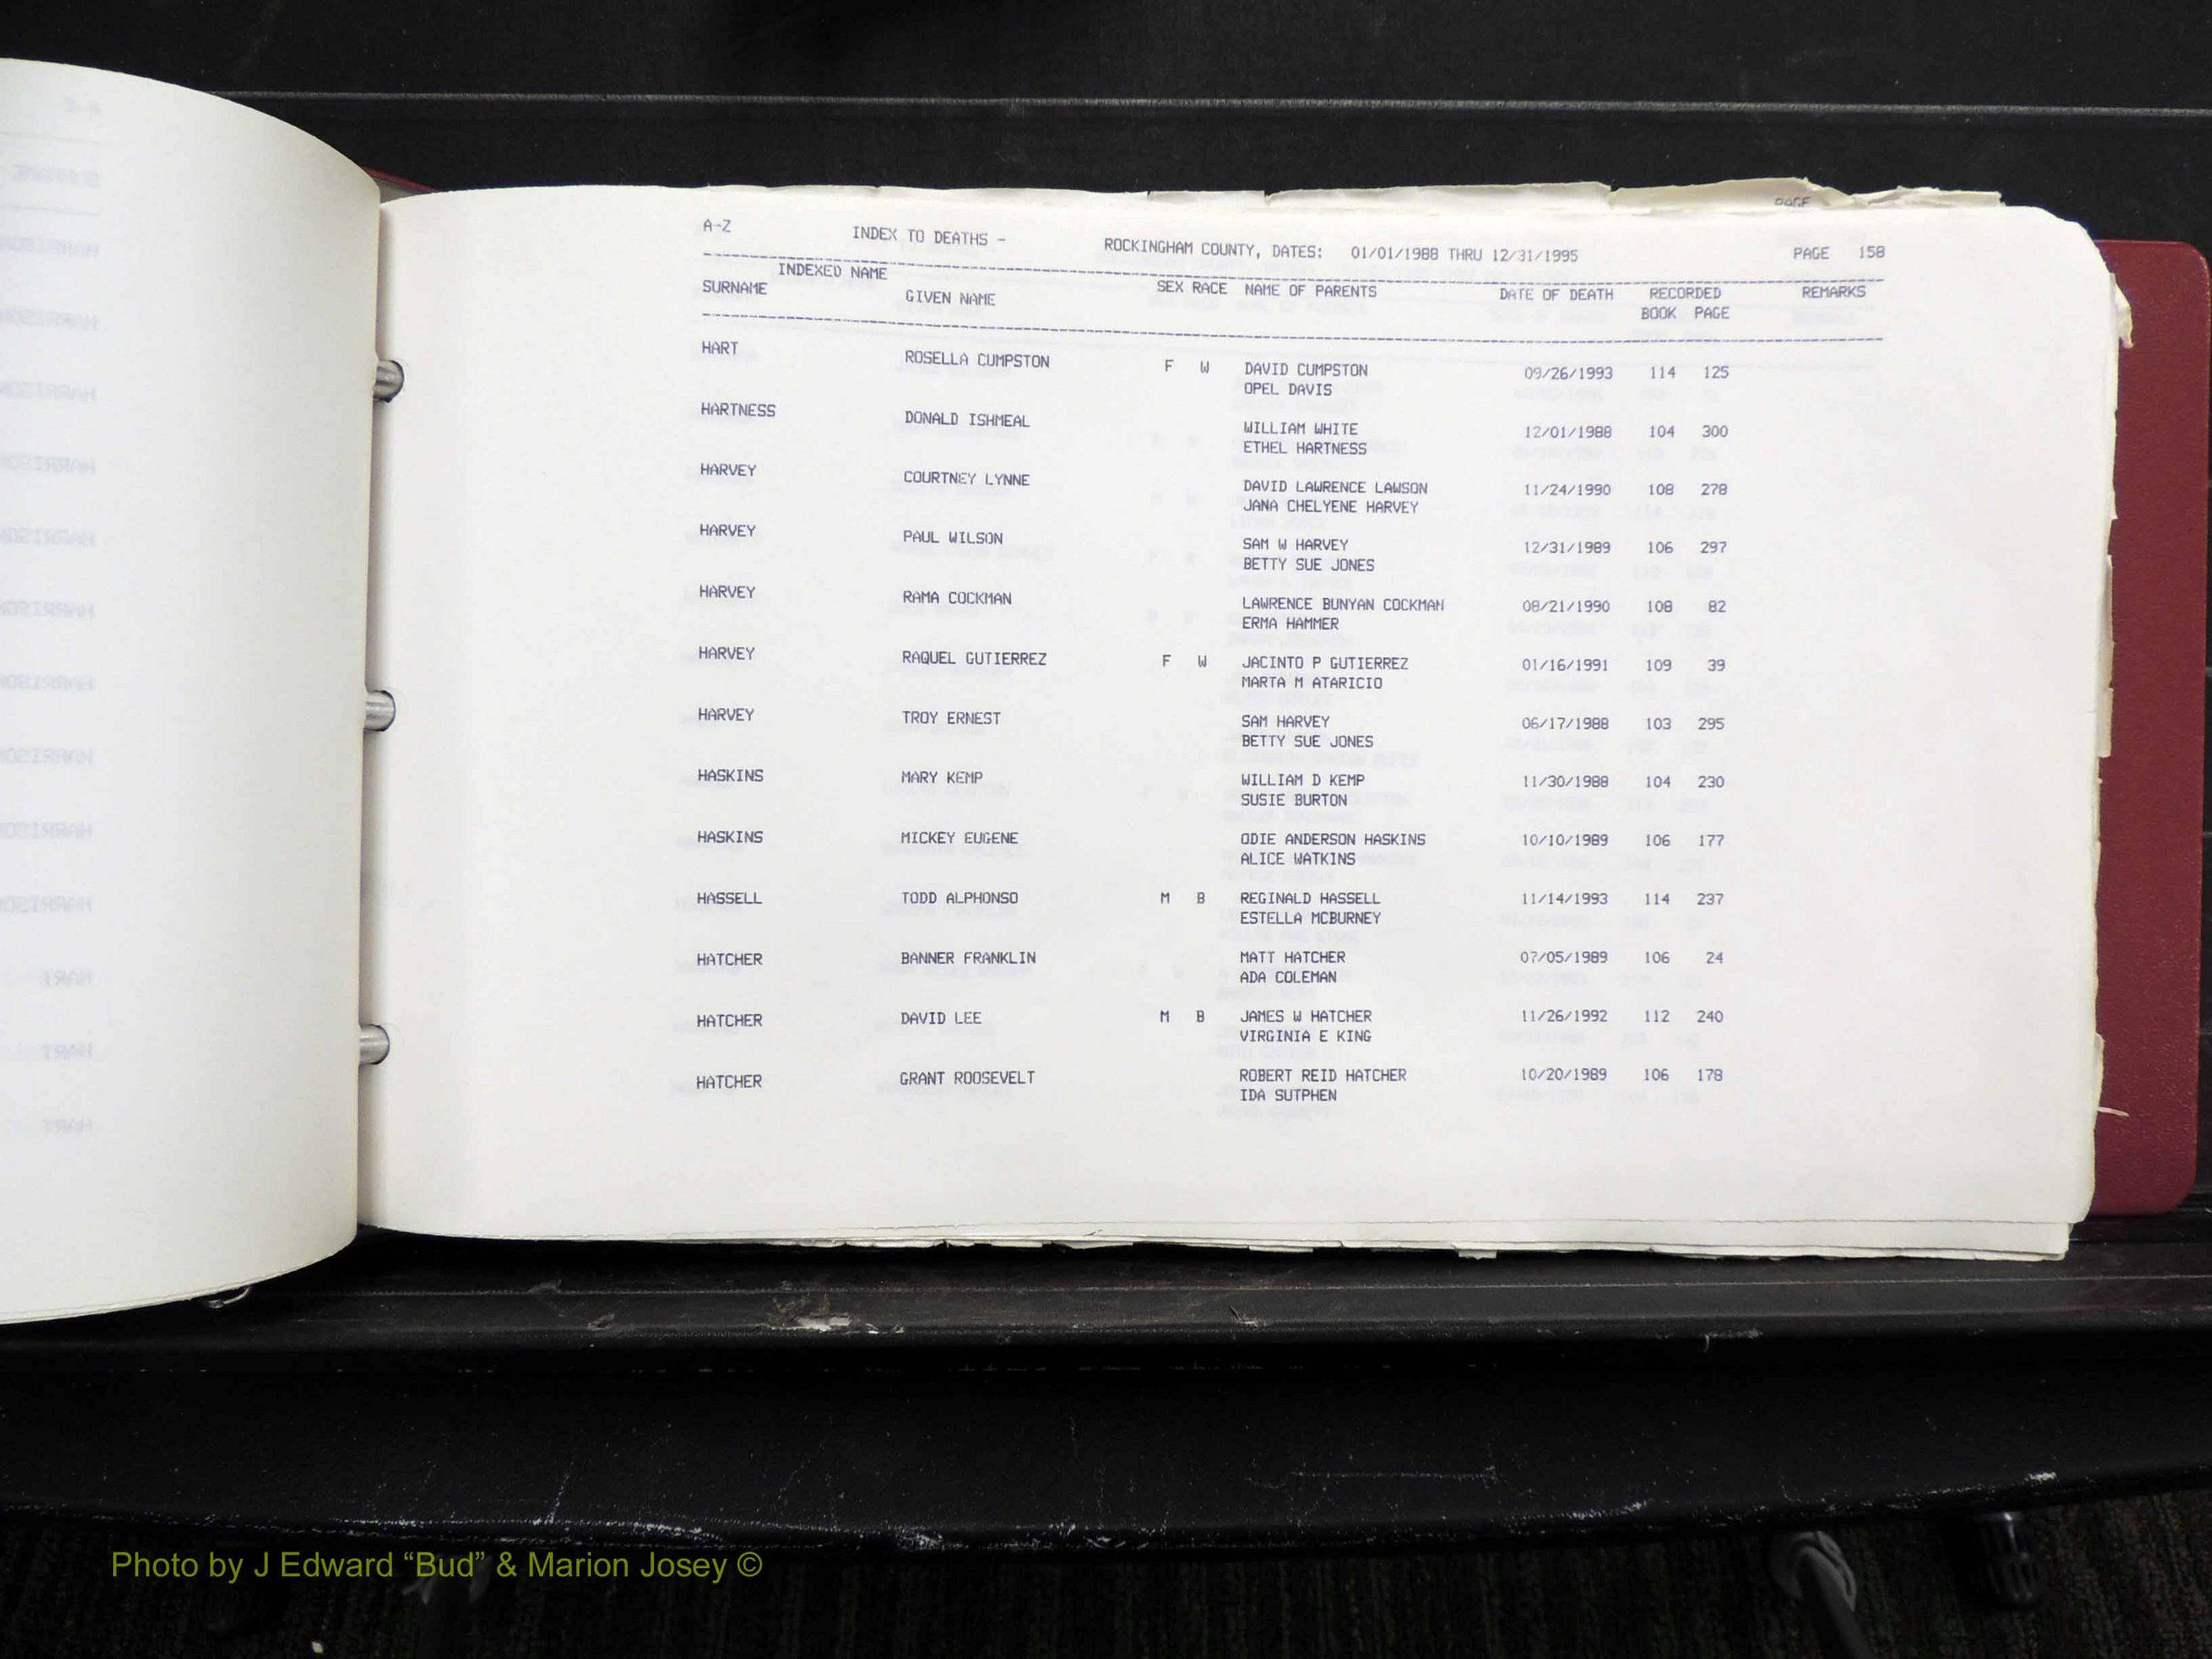 PAGE
A-Z INDEX TO DEATHS - ROCKINGHAM COUNTY, DATES: 01/01/1988 THRU 12/31/1995 PAGE 158
INDEXED NAME
SURNAME GIVEN NAME SEX RACE NAME OF PARENTS DATE OF DEATH RECORDED REMARKS
BOOK PAGE
HART ROSELLA CUMPSTON F W DAVID CUMPSTON 09/26/1993 114 125
OPEL DAVIS
HARTNESS DONALD ISHMEAL WILLIAM WHITE 12/01/1988 104 300
ETHEL HARTNESS
HARVEY COURTNEY LYNNE DAVID LAWRENCE LAWSON 11/24/1990 108 278
JANA CHELYENE HARVEY
HARVEY PAUL WILSON SAM W HARVEY 12/31/1989 106 297
BETTY SUE JONES
HARVEY RAMA COCKMAN LAWRENCE BUNYAN COCKMAN 08/21/1990 108 82
ERMA HAMMER
HARVEY RAQUEL GUTIERREZ F W JACINTO P GUTIERREZ 01/16/1991 109 39
MARTA M ATARICIO
HARVEY TROY ERNEST SAM HARVEY 06/17/1988 103 295
BETTY SUE JONES
HASKINS MARY KEMP WILLIAM D KEMP 11/30/1988 104 230
SUSIE BURTON
HASKINS MICKEY EUGENE ODIE ANDERSON HASKINS 10/10/1989 106 177
ALICE WATKINS
HASSELL TODD ALPHONSO M B REGINALD HASSELL 11/14/1993 114 237
ESTELLA MCBURNEY
HATCHER BANNER FRANKLIN MATT HATCHER 07/05/1989 106 24
ADA COLEMAN
HATCHER DAVID LEE M B JAMES W HATCHER 11/26/1992 112 240
VIRGINIA E KING
HATCHER GRANT ROOSEVELT ROBERT REID HATCHER 10/20/1989 106 178
IDA SUTPHEN
Photo by J Edward “Bud” & Marion Josey ©